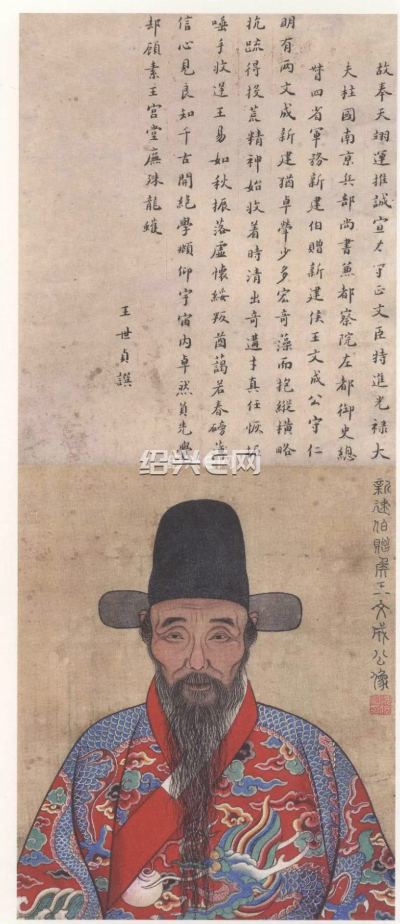 故奉天翊運推誠宣力守正文臣特進光禄大
夫柱國南京兵部尚書兼都察院左都御史總
督四省軍務新建伯贈新建侯王文成公守仁
明有两文成新建猶卓犖少多宏奇藻而抱縱橫略
抗疏得投荒精神始收着時清出奇遘才真任恢
唾手收逆王易如秋振落虛懷綏叛酋藹若春磅礴
信心見良知千古開絕學頫仰宇宙內卓然負先覺
却顧素王宮堂廡殊龍蠖
王世貞譔
新建伯贈侯王文成公像
绍兴e网